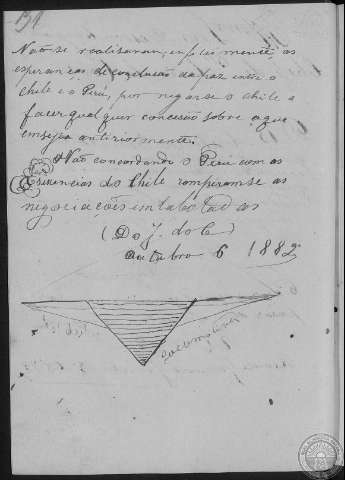 131
Não se realisaram, infelizmente, as
esperanças de conclusão da paz entre o
Chile e o Perú, por negar-se o Chile a
fazer qualquer concessão sobre o que
anteriormente.
Não concordando o Perú com as
exigencias do Chile romperam-se as
negociações entaboladas
(Do J. do C)
outubro 6 1882